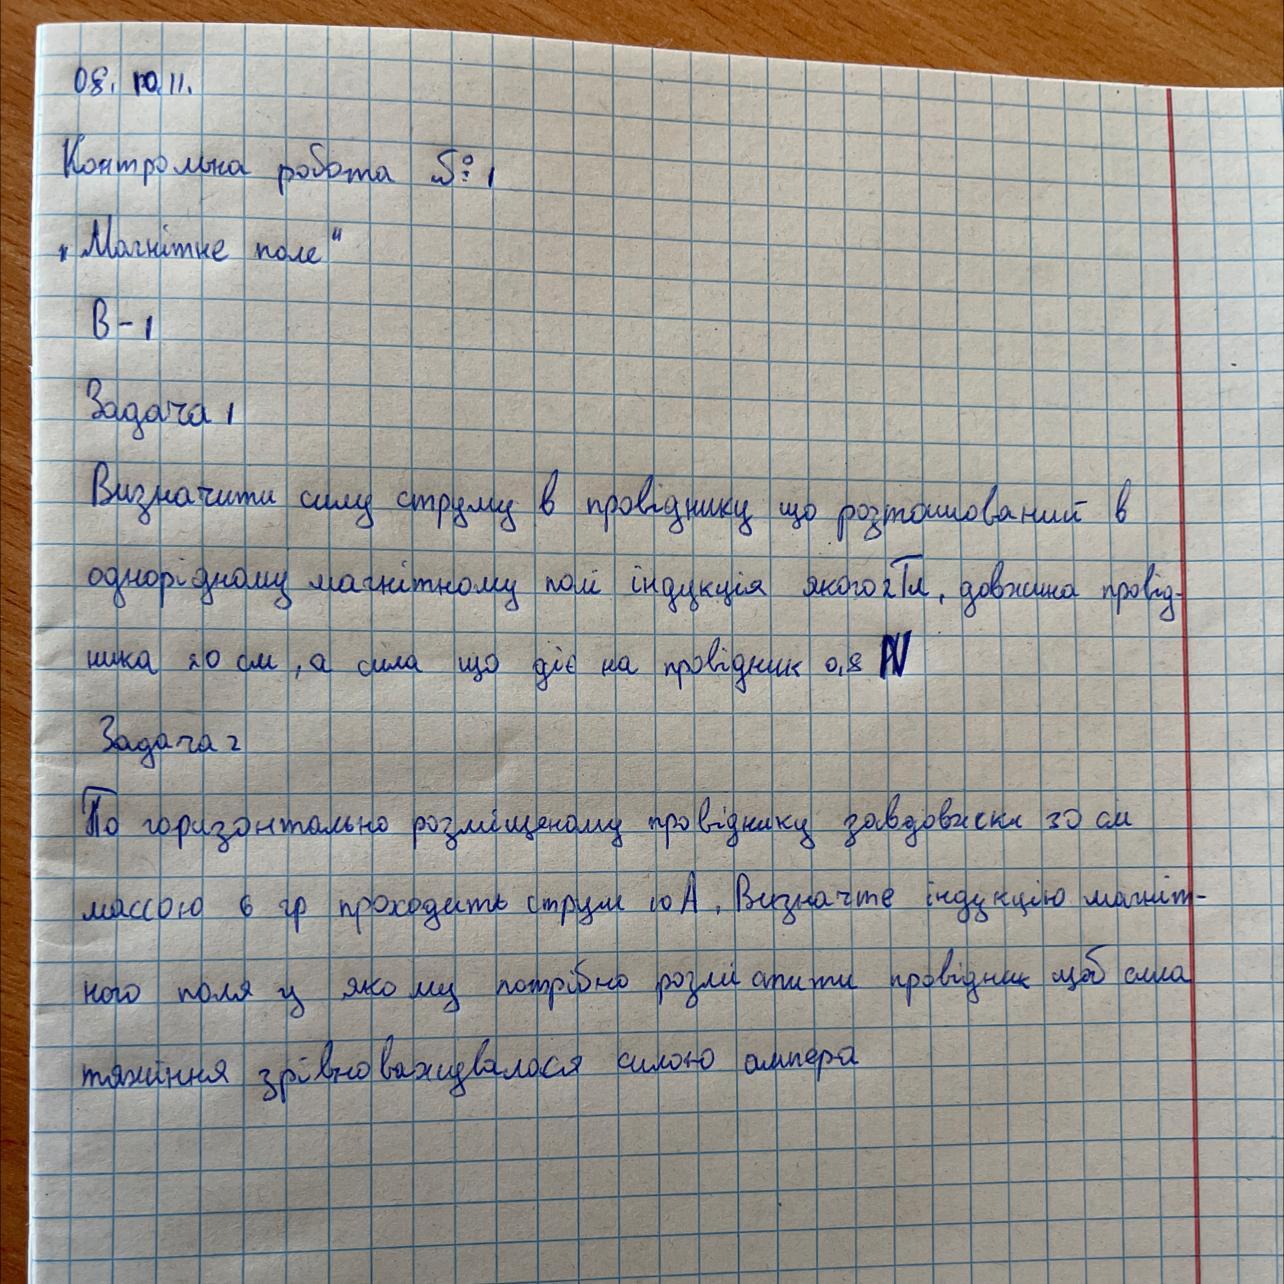 08. 10. 11.
Контрольна робота № 1
"Магнітне поле"
В-1
Задача 1
Визначити силу струму в провіднику що розташований в
однорідному магнітному полі індукція якого 2Тл, довжина провід-
ника 20 см, а сила що діє на провідник 0,8 N
Задача 2
По горизонтально розміщеному провіднику завдовжки 30 см
массою 6 гр проходить струм 10 А. Визначте індукцію магніт-
ного поля у якому потрібно розмістити провідник щоб сила
тяжіння зрівноважувалася силою ампера